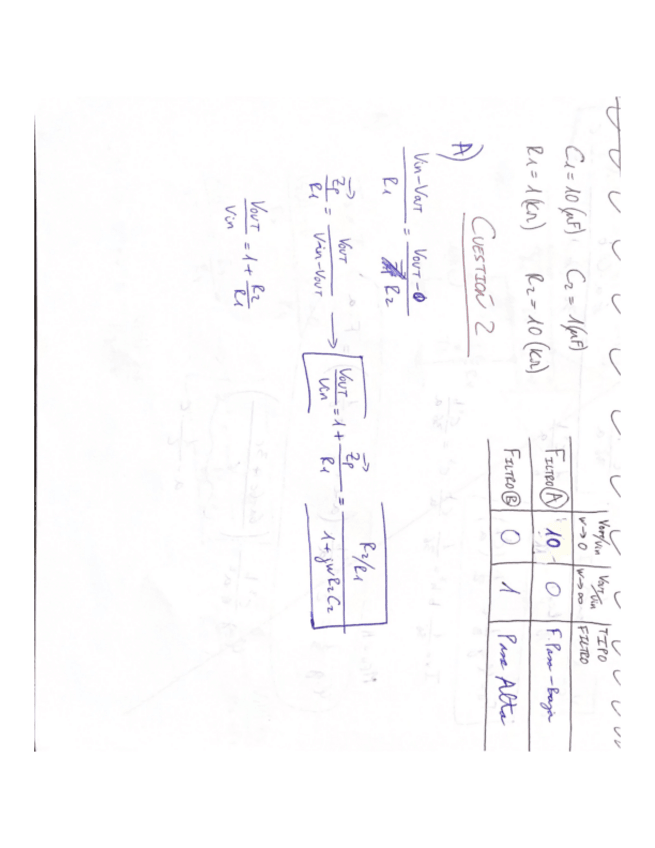 C1 = 10 (μF) C2 = 1 (μF)
R1 = 1 (KΩ) R2 = 10 (KΩ)
Vout/Vin w→0 | Vout/Vin w→∞ | TIPO FILTRO
FILTRO Ⓐ | 10 | 0 | F. Pasa-Baja
FILTRO Ⓑ | 0 | 1 | Pasa Alta
CUESTIÓN 2
A)
(Vin - Vout)/R1 = (Vout - 0)/R2
Zp/R1 = Vout/(Vin - Vout) → Vout/Vin = 1 + Zp/R1 = (R2/R1)/(1 + jwR2C2)
Vout/Vin = 1 + R2/R1